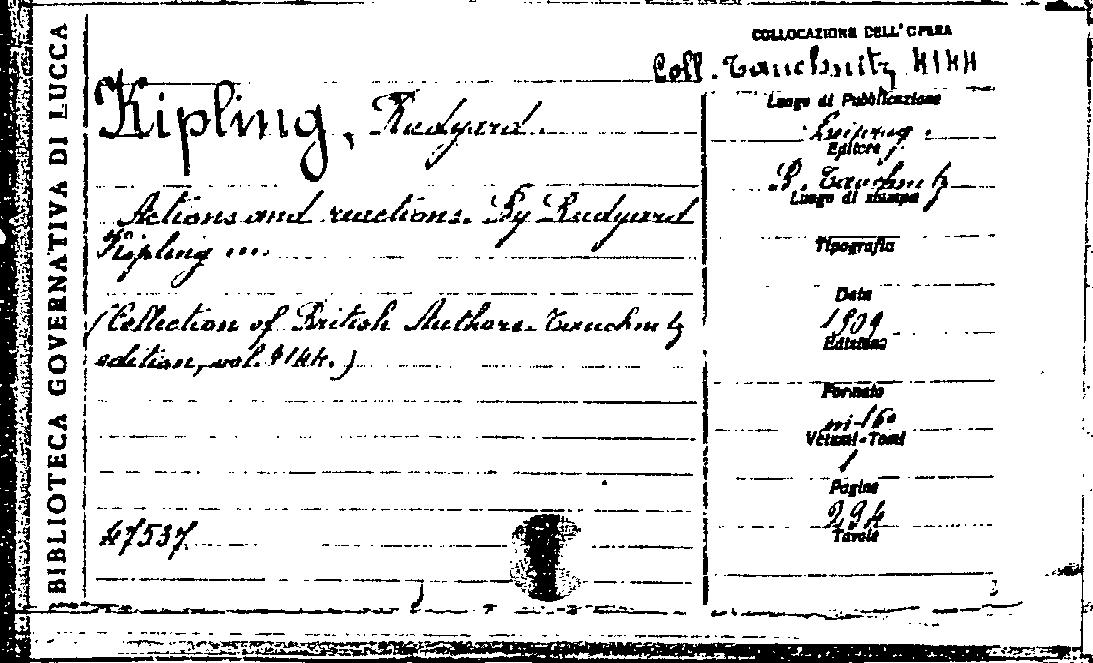 BIBLIOTECA GOVERNATIVA DI LUCCA
COLLOCAZIONE DELL'OPERA
Coll. Tauchnitz 4144
Kipling, Rudyard.
Actions and reactions. By Rudyard
Kipling ...
(Collection of British Authors. Tauchnitz
edition, vol. 4144.)
47537
Luogo di Pubblicazione
Leipzig.
Editore
B. Tauchnitz
Luogo di stampa
Tipografia
Data
1909
Edizione
Formato
in-16°
Volumi-Tomi
1
Pagine
294
Tavole